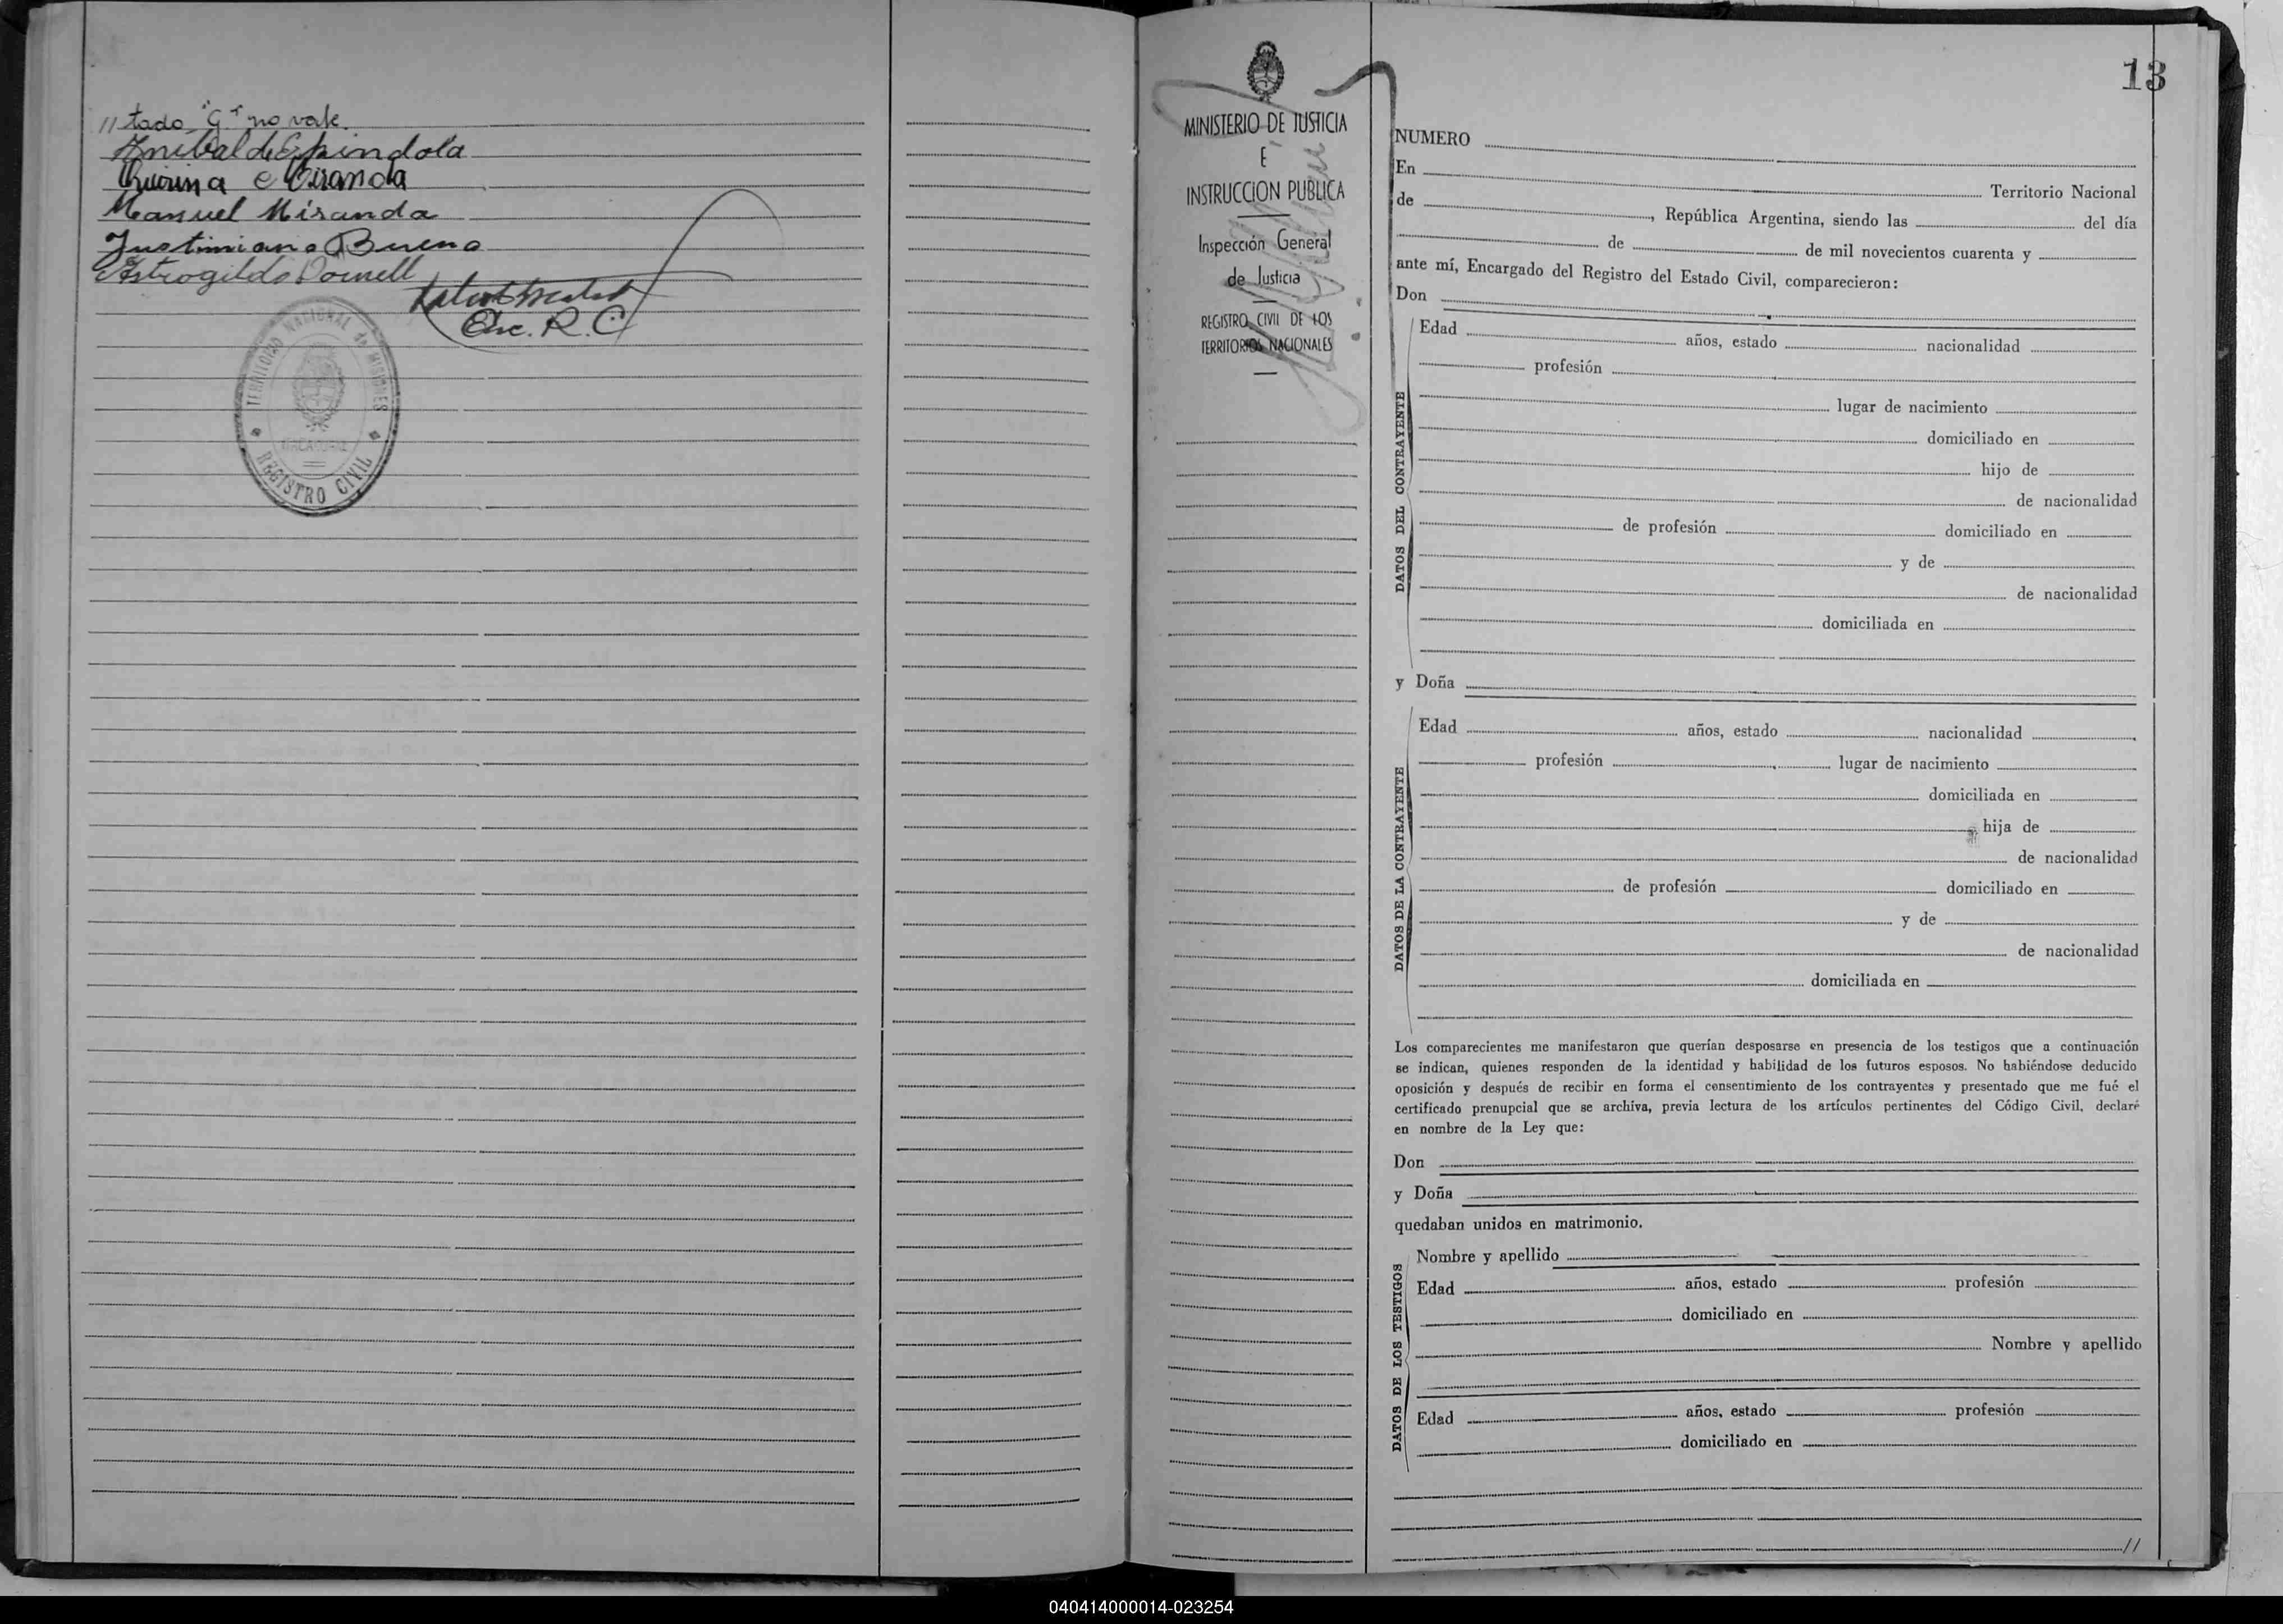 // tado "G" no vale.
Anibal de Espindola
Miranda
Manuel Miranda
Justiniano Bueno
Astrogildo Dornell
Enc. R. C.
TERRITORIO NACIONAL de MISIONES
REGISTRO CIVIL
MINISTERIO DE JUSTICIA
E
INSTRUCCION PUBLICA
Inspección General
de Justicia
REGISTRO CIVIL DE LOS
TERRITORIOS NACIONALES
13
NUMERO
En Territorio Nacional
de , República Argentina, siendo las del día
de de mil novecientos cuarenta y
ante mí, Encargado del Registro del Estado Civil, comparecieron:
Don
DATOS DEL CONTRAYENTE
Edad años, estado nacionalidad
profesión
lugar de nacimiento
domiciliado en
hijo de
de nacionalidad
de profesión domiciliado en
y de
de nacionalidad
domiciliada en
y Doña
DATOS DE LA CONTRAYENTE
Edad años, estado nacionalidad
profesión lugar de nacimiento
domiciliada en
hija de
de nacionalidad
de profesión domiciliado en
y de
de nacionalidad
domiciliada en
Los comparecientes me manifestaron que querían desposarse en presencia de los testigos que a continuación
se indican, quienes responden de la identidad y habilidad de los futuros esposos. No habiéndose deducido
oposición y después de recibir en forma el consentimiento de los contrayentes y presentado que me fué el
certificado prenupcial que se archiva, previa lectura de los artículos pertinentes del Código Civil, declaré
en nombre de la Ley que:
Don
y Doña
quedaban unidos en matrimonio.
DATOS DE LOS TESTIGOS
Nombre y apellido
Edad años, estado profesión
domiciliado en
Nombre y apellido
Edad años, estado profesión
domiciliado en
//
040414000014-023254